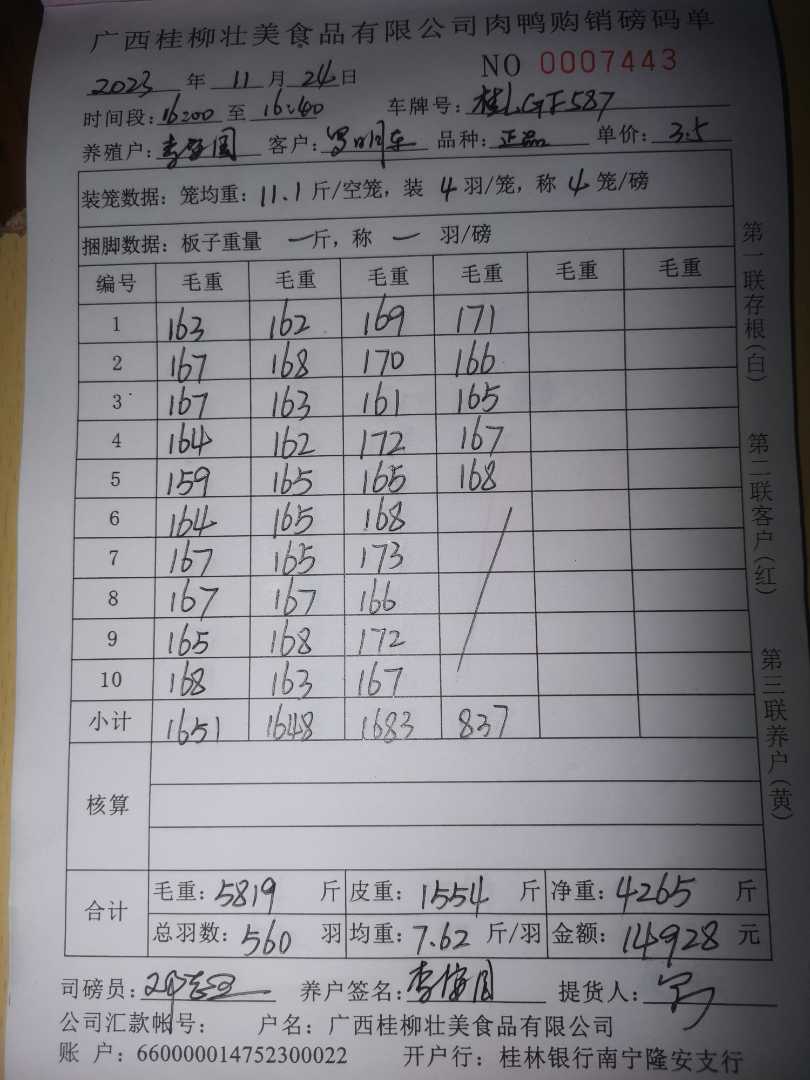 广西桂柳壮美食品有限公司肉鸭购销磅码单
2023 年 11 月 24 日 NO 0007443
时间段: 16:00 至 16:40 车牌号: 桂LGF587
养殖户: 客户: 品种: 正品 单价: 3.5
装笼数据: 笼均重: 11.1 斤/空笼, 装 4 羽/笼, 称 4 笼/磅
捆脚数据: 板子重量 一 斤, 称 一 羽/磅
编号 毛重 毛重 毛重 毛重 毛重 毛重
1 163 162 169 171
2 167 168 170 166
3 167 163 161 165
4 164 162 172 167
5 159 165 165 168
6 164 165 168
7 167 165 173
8 167 167 166
9 165 168 172
10 168 163 167
小计 1651 1648 1683 837
核算
合计 毛重: 5819 斤 皮重: 1554 斤 净重: 4265 斤
总羽数: 560 羽 均重: 7.62 斤/羽 金额: 14928 元
司磅员: 养户签名: 提货人:
公司汇款帐号: 户名: 广西桂柳壮美食品有限公司
账 户: 660000014752300022 开户行: 桂林银行南宁隆安支行
第一联存根(白) 第二联客户(红) 第三联养户(黄)